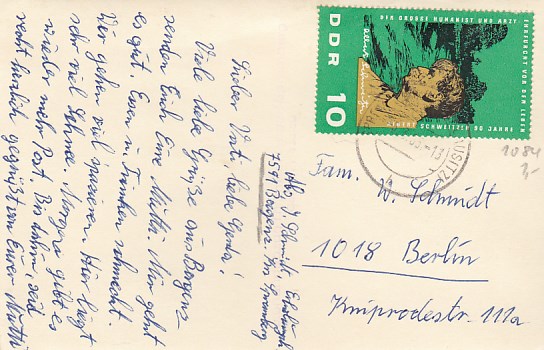 Lieber Vati, liebe Gerda!
Viele liebe Grüße aus Bergen
senden Euch Eure Mutti. Mir geht
es gut. Essen u. Trinken schmeckt.
Wir gehen viel spazieren. Hier liegt
sehr viel Schnee. Morgen gibt es
wieder mehr Post. Bis dahin seid
recht herzlich gegrüßt von Eurer Mutti
Abs. J. Schmidt, Erholungsh.
7591 Bergen Krs. Spremberg
DDR
10
DER GROSSE HUMANIST UND ARZT
EHRFURCHT VOR DEM LEBEN
ALBERT SCHWEITZER 90 JAHRE
LAUSITZ
1084
3,-
Fam. W. Schmidt
1018 Berlin
Kniprodestr. 111a